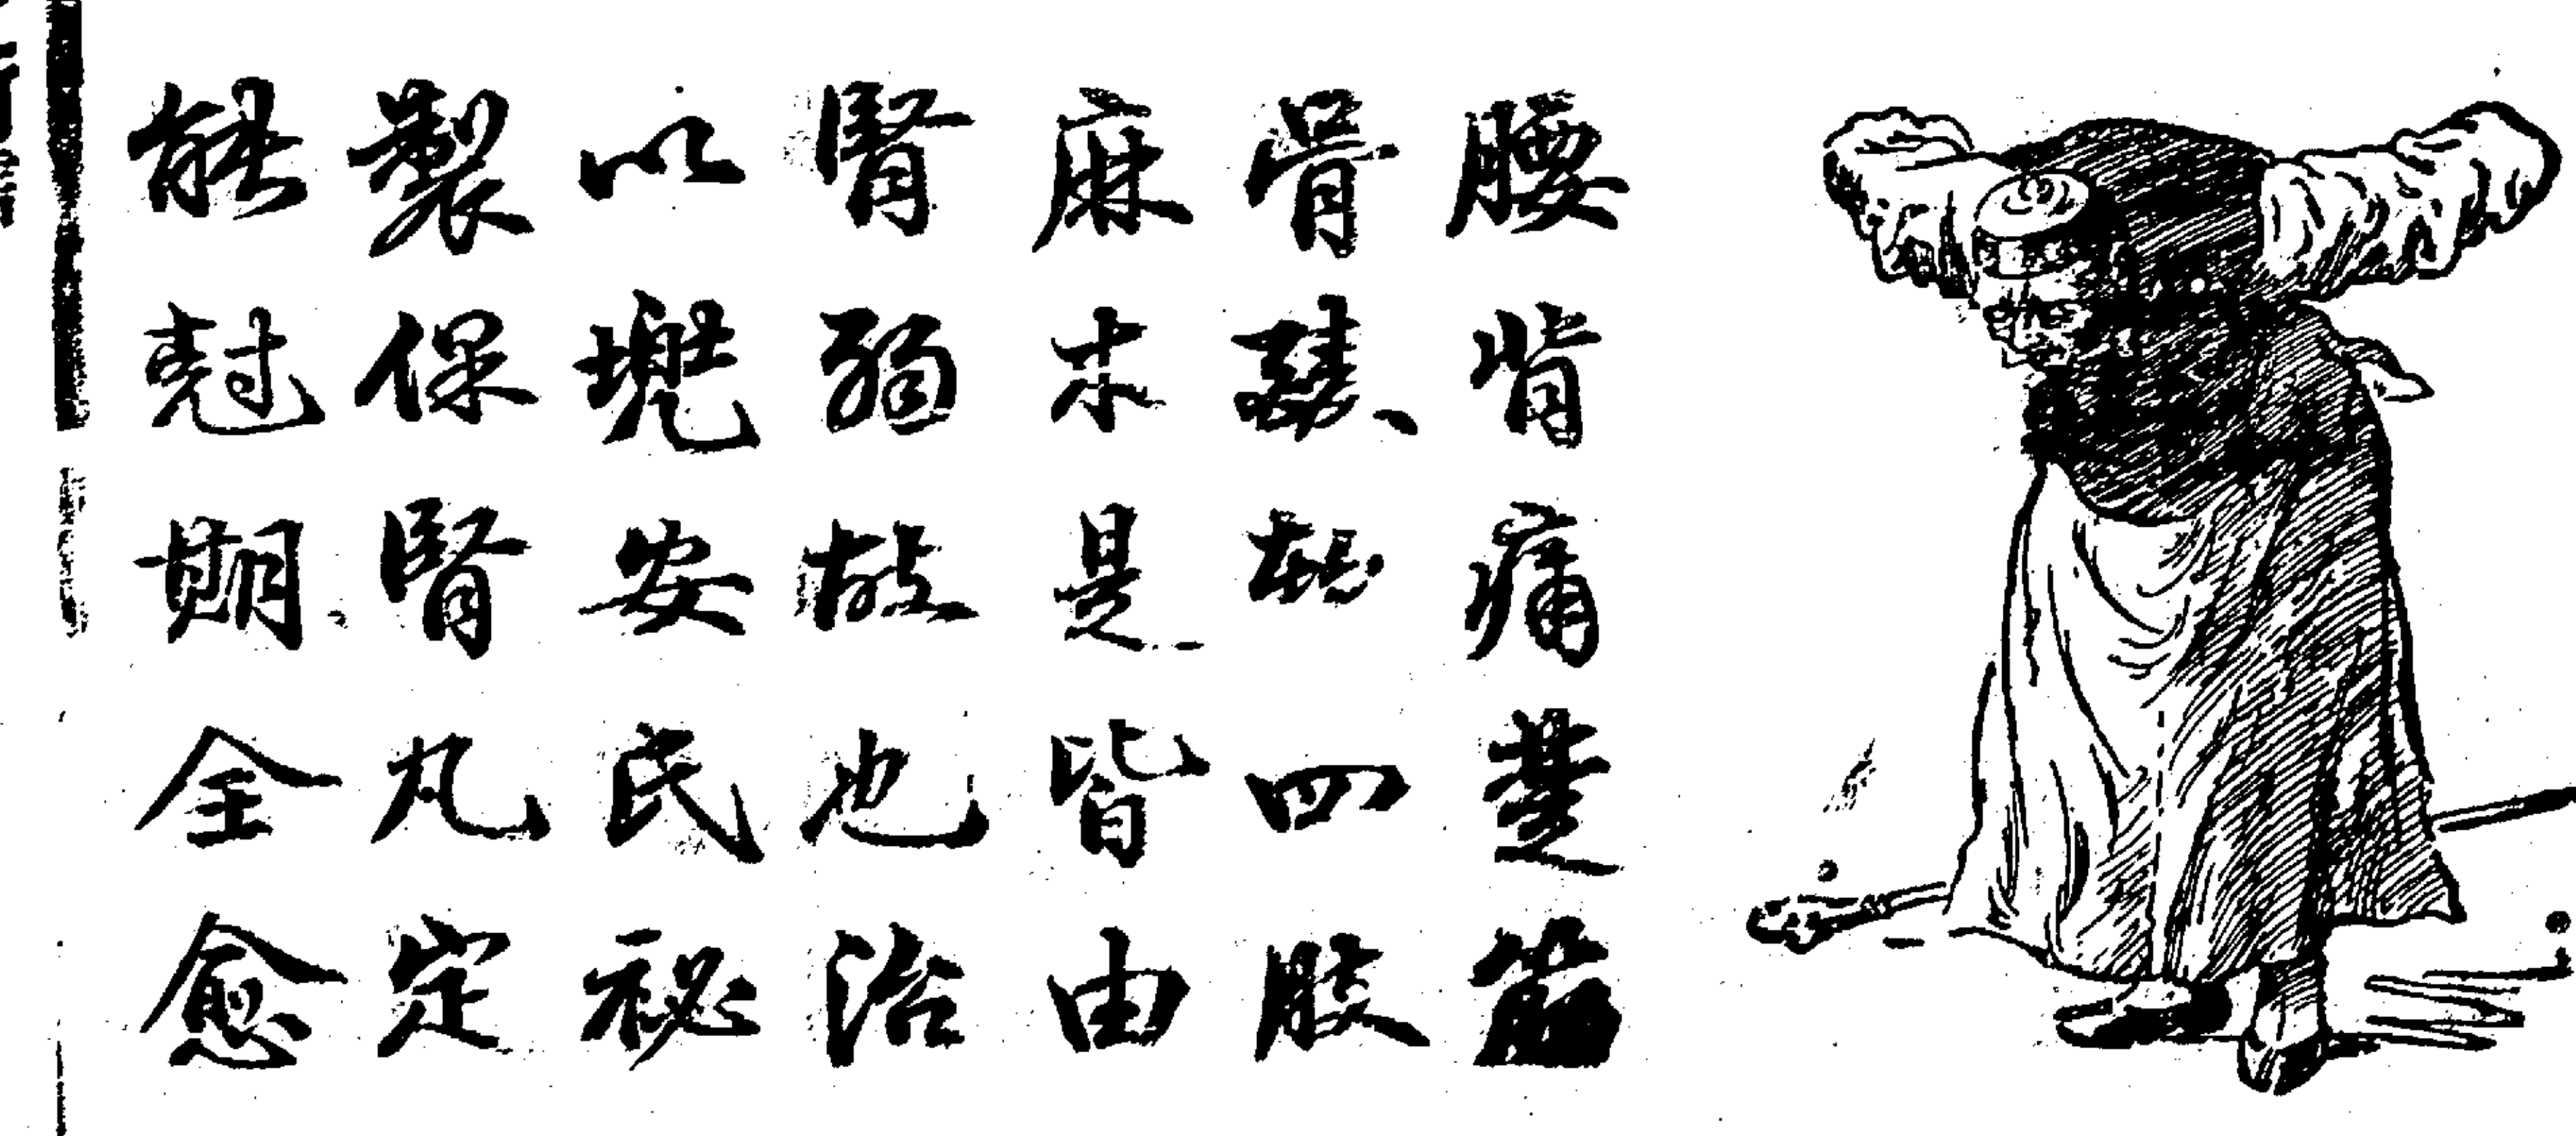 腰背痛楚筋
骨四肢
麻木是皆由
腎弱故也治
以兜安氏祕
製保腎丸定
能尅期全愈